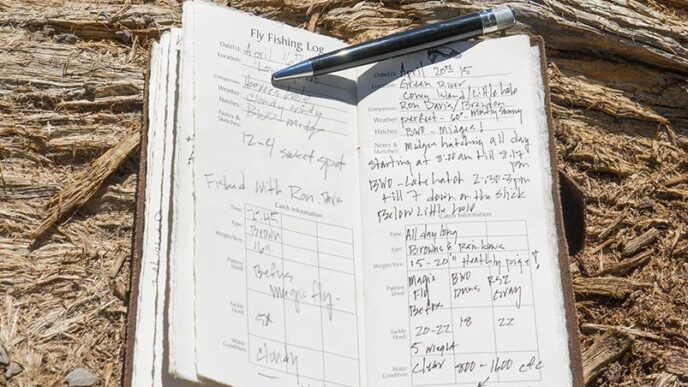 Fly Fishing Log
Date(s): April
Location:
Companions:
Weather: Cloudy windy
Hatches: BWO midge
Notes &
Sketches:
12-4 sweet spot
Fished with Ron Davis
Catch Information
Time: 2:45
Type: Brown
Weight/Size: 16"
Pattern
Used:
magic fly.
Tackle
Used: 5x
Water
Condition: Cloudy
Date(s): April 20th 15
Location: Green River
Coney Island/Little hole
Companions: Ron Davis/Brendon
Weather: perfect - 60° Mostly Sunny
Hatches: BWO - Midges!
Notes &
Sketches: midges hatching all day
starting at 8:00 am till 8:17
pm
BWO - Late hatch 2:30-3pm
till 7 down on the slick
Below Little hole
Catch Information
Time: All day long
Type: Browns & Rainbows
Weight/Size: 15-20" Healthy pigs!
Pattern
Used: Magic BWO RS2
Fly Duns Gray
Tackle
Used: 20-22 18 22
Water
Condition: Clear 800-1600 cfs